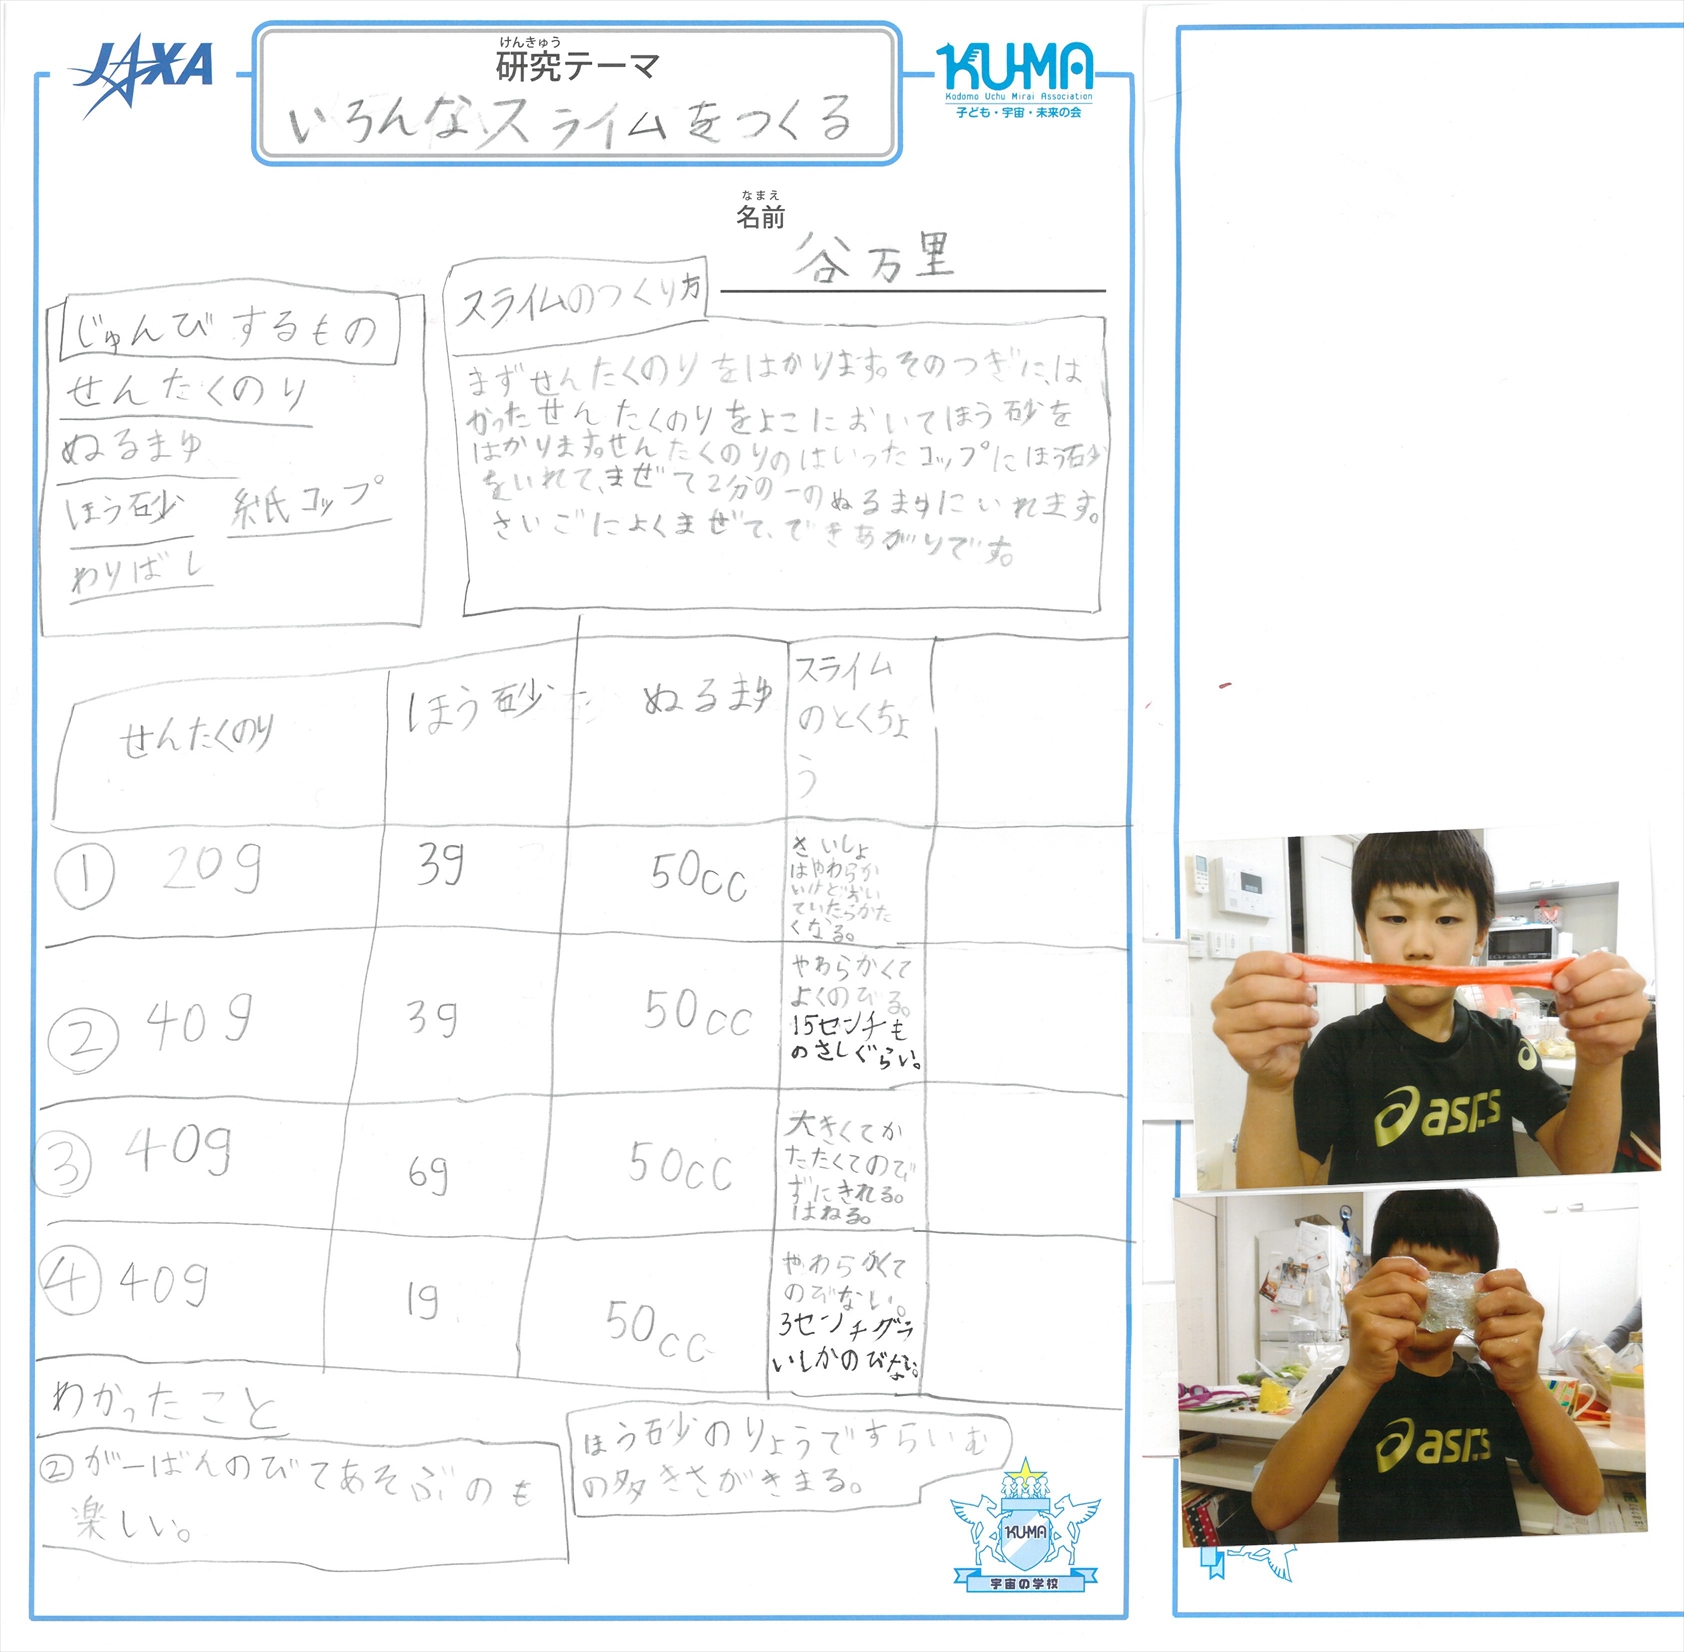 JAXA
けんきゅう
研究テーマ
いろんなスライムをつくる
KU-MA
Kodomo Uchu Mirai Association
子ども・宇宙・未来の会
なまえ
名前
谷万里
じゅんびするもの
せんたくのり
ぬるまゆ
ほう砂 紙コップ
わりばし
スライムのつくり方
まずせんたくのりをはかります。そのつぎに、は
かったせんたくのりをよこにおいてほう砂を
はかります。せんたくのりのはいったコップにほう砂
をいれて、まぜて2分の一のぬるまゆにいれます。
さいごによくまぜて、できあがりです。
せんたくのり ほう砂 ぬるまゆ
スライム
のとくちょ
う
① 20g 3g 50cc
さいしょ
はやわらか
いけどおい
ていたらかた
くなる。
② 40g 3g 50cc
やわらかくて
よくのびる。
15センチも
のさしぐらい。
③ 40g 6g 50cc
大きくてか
たたくてのび
ずにきれる。
はねる。
④ 40g 1g 50cc
やわらかくて
のびない。
3センチグラ
いしかのびない。
わかったこと
②がーばんのびてあそぶのも
楽しい。
ほう砂のりょうですらいむ
の多きさがきまる。
KU-MA
宇宙の学校
asics
asics